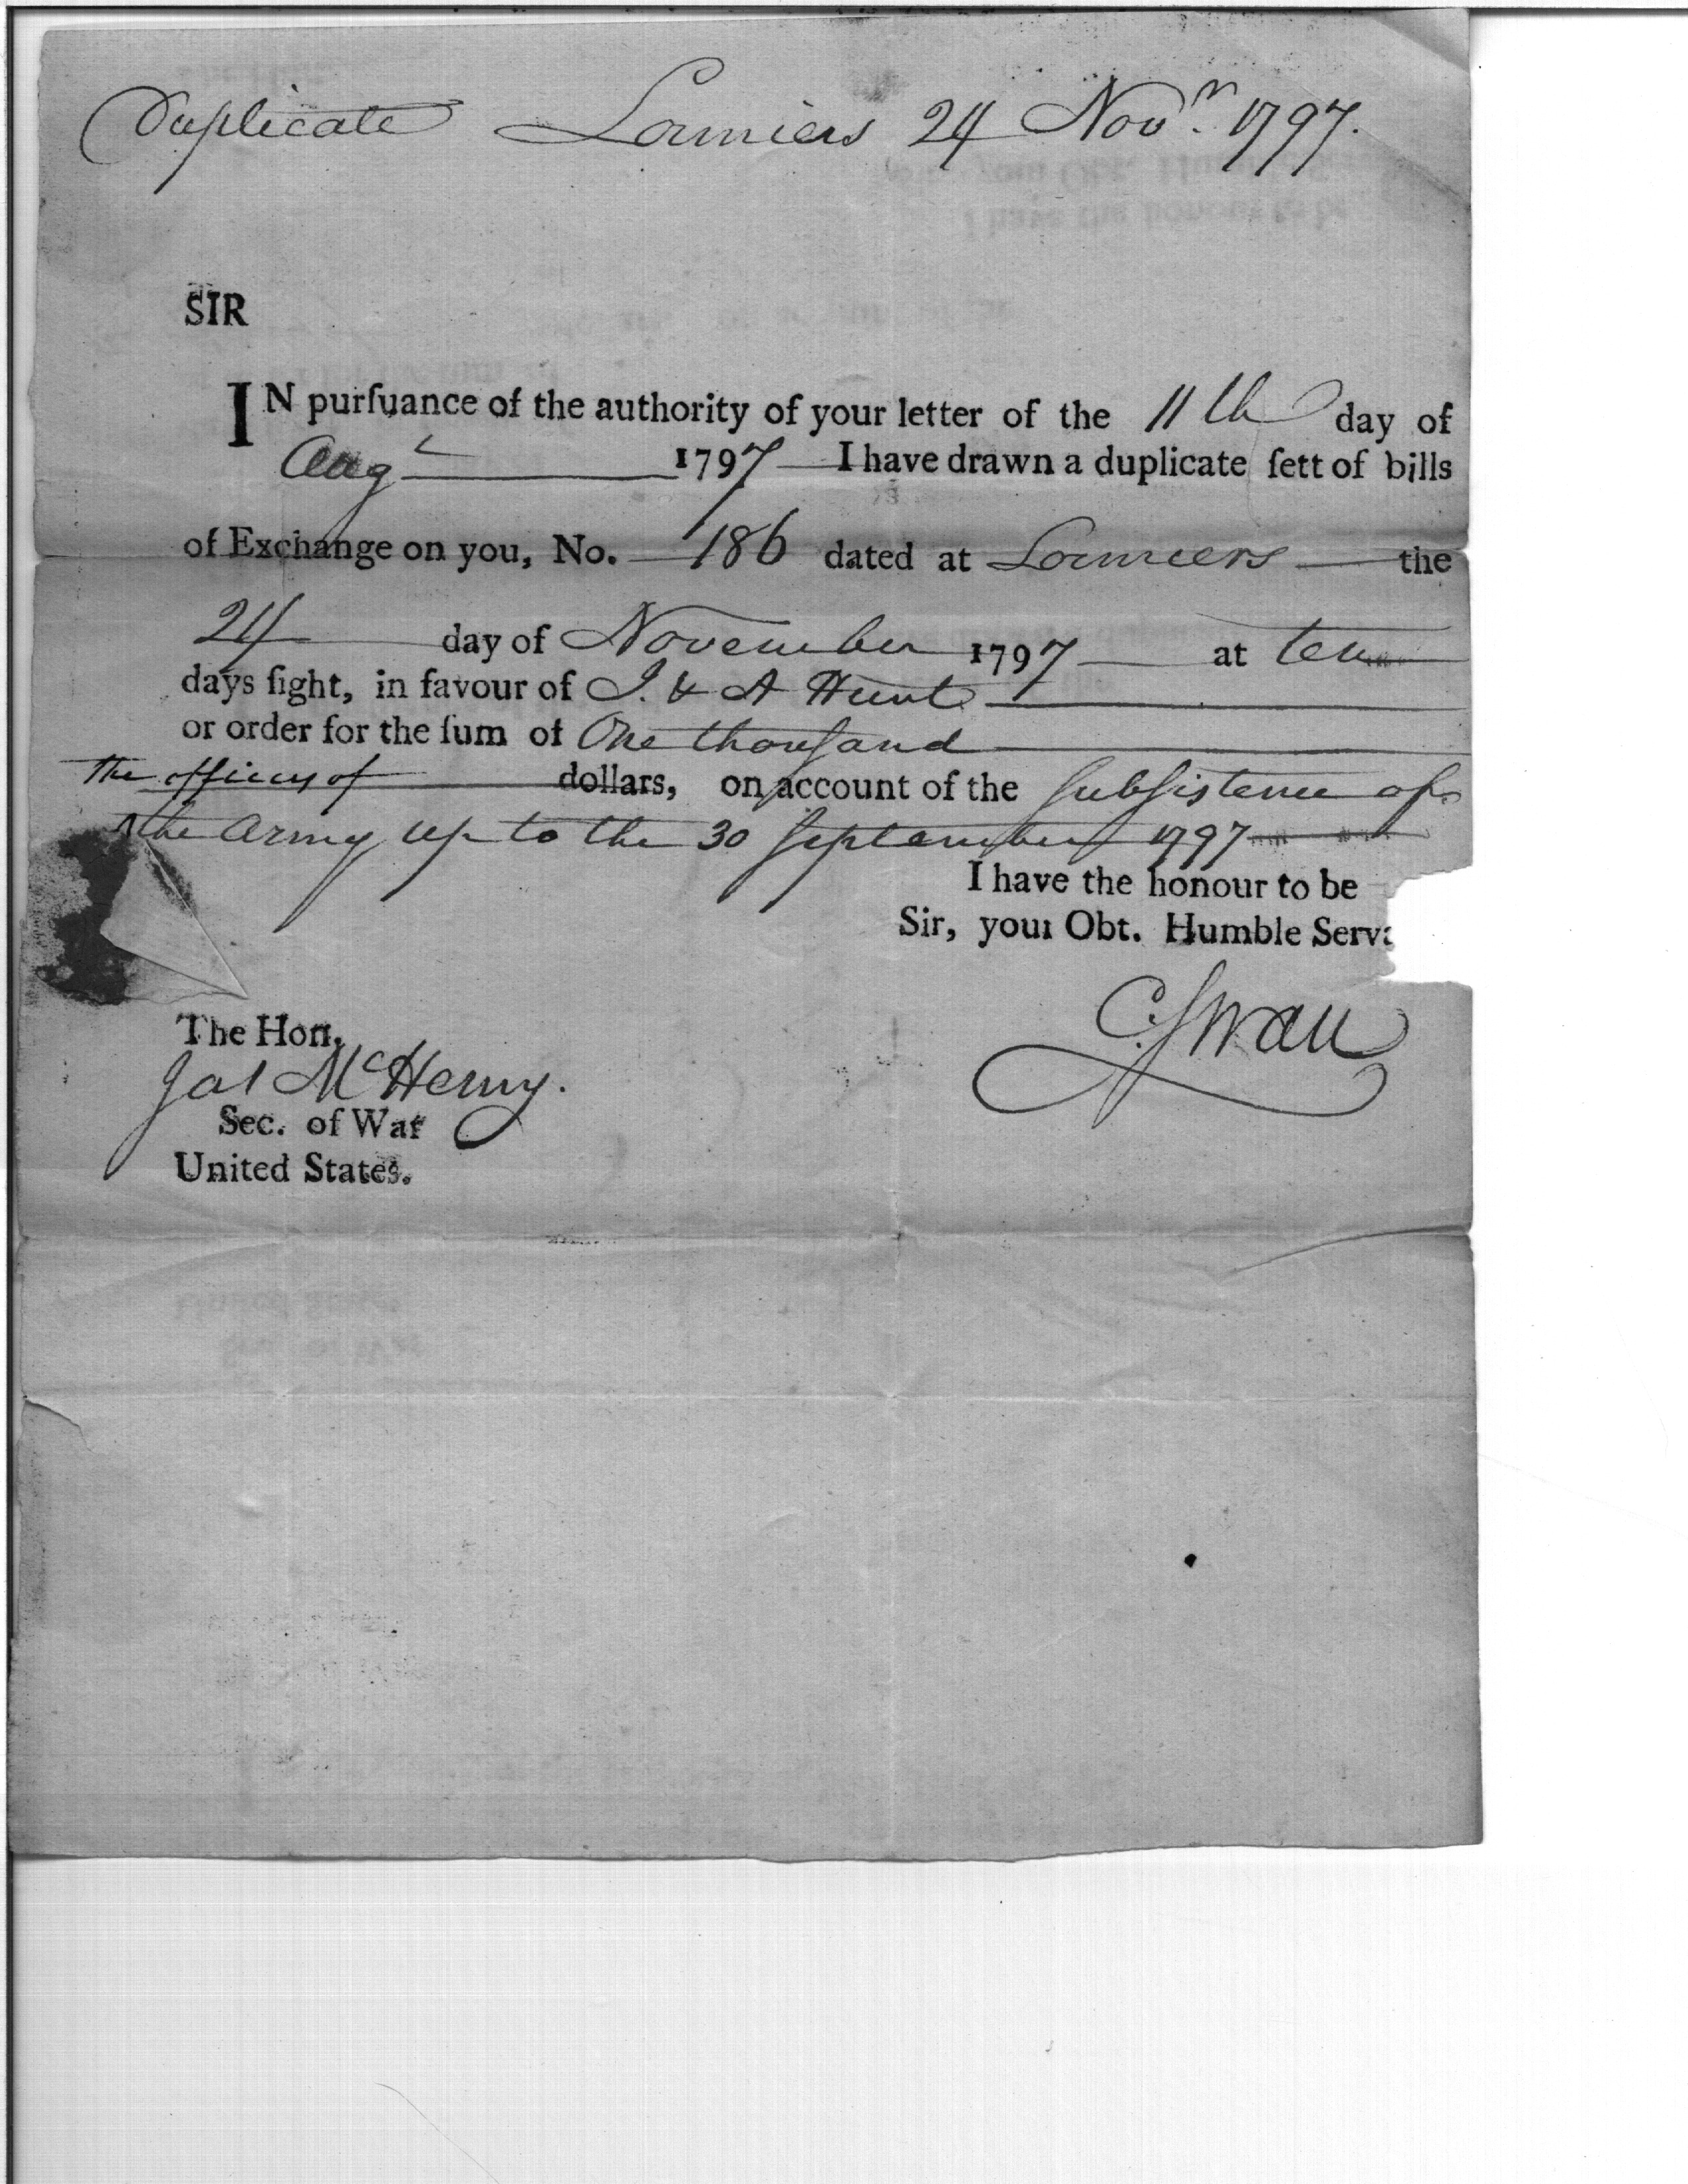 Duplicate Lormiers 24 Novr. 1797.
SIR
IN purſuance of the authority of your letter of the 11th day of
Augt 1797 I have drawn a duplicate ſett of bills
of Exchange on you, No. 186 dated at Lormiers the
24 day of November 1797 at ten
days ſight, in favour of J. & A Hunt
or order for the ſum of One thouſand
the officers of dollars, on account of the Subſistence of
^the Army up to the 30 September 1797
I have the honour to be
Sir, your Obt. Humble Serva
C. Swan
The Hon.
Jas McHenry.
Sec. of War
United States.